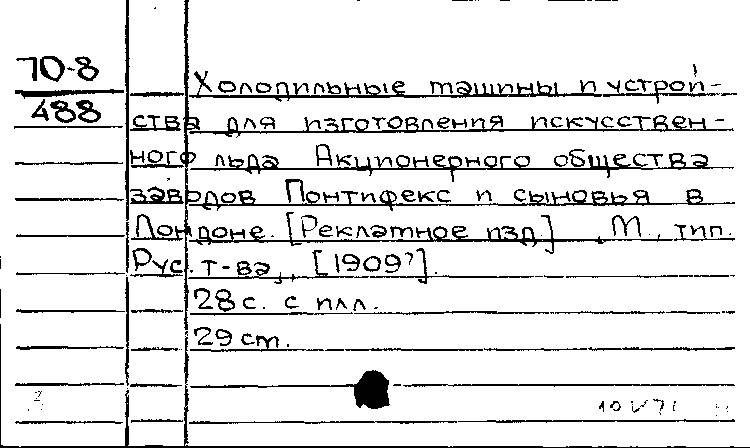 70-8
488
Холодильные машины и устрой-
ства для изготовления искусствен-
ного льда Акционерного общества
заводов Понтифекс и сыновья в
Лондоне. [Рекламное изд.] , М., тип.
Рус. т-ва, [1909?].
28 с. с илл.
29 см.
10 V 71